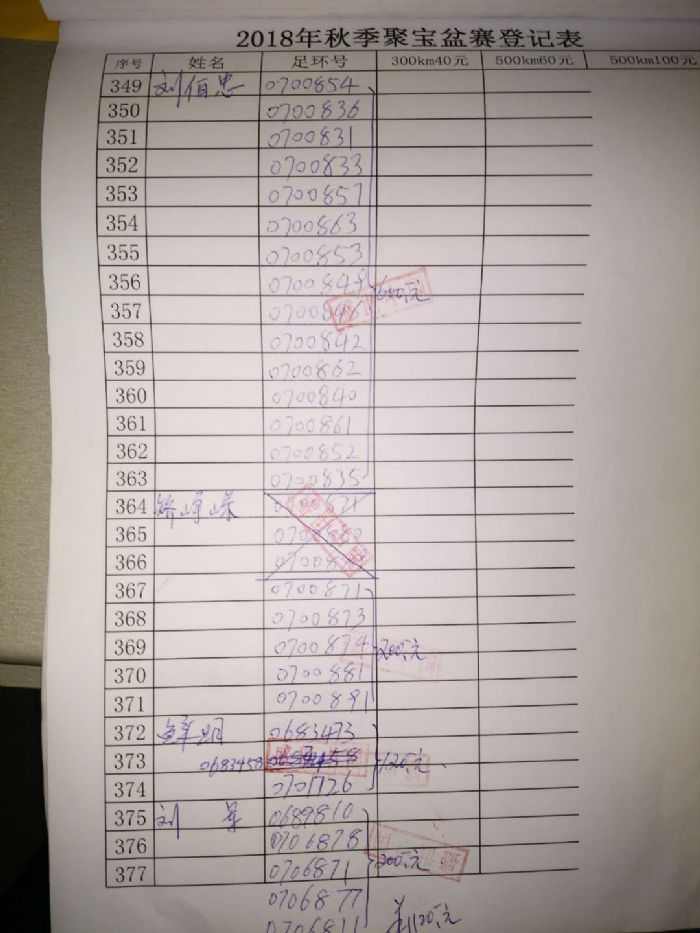 2018年秋季聚宝盆赛登记表
序号 姓名 足环号 300km40元 500km60元 500km100元
349 刘伯忠 0700854
350 0700836
351 0700831
352 0700833
353 0700857
354 0700863
355 0700853
356 0700849 600元
357 0700846
358 0700842
359 0700862
360 0700840
361 0700861
362 0700852
363 0700835
364
365
366
367 0700871
368 0700873
369 0700874 200元
370 0700881
371 0700891
372 0683473
373 0683458 120元
374 0701726
375 刘 0689810
376 0706878
377 0706871 200元
0706877
0706811 120元